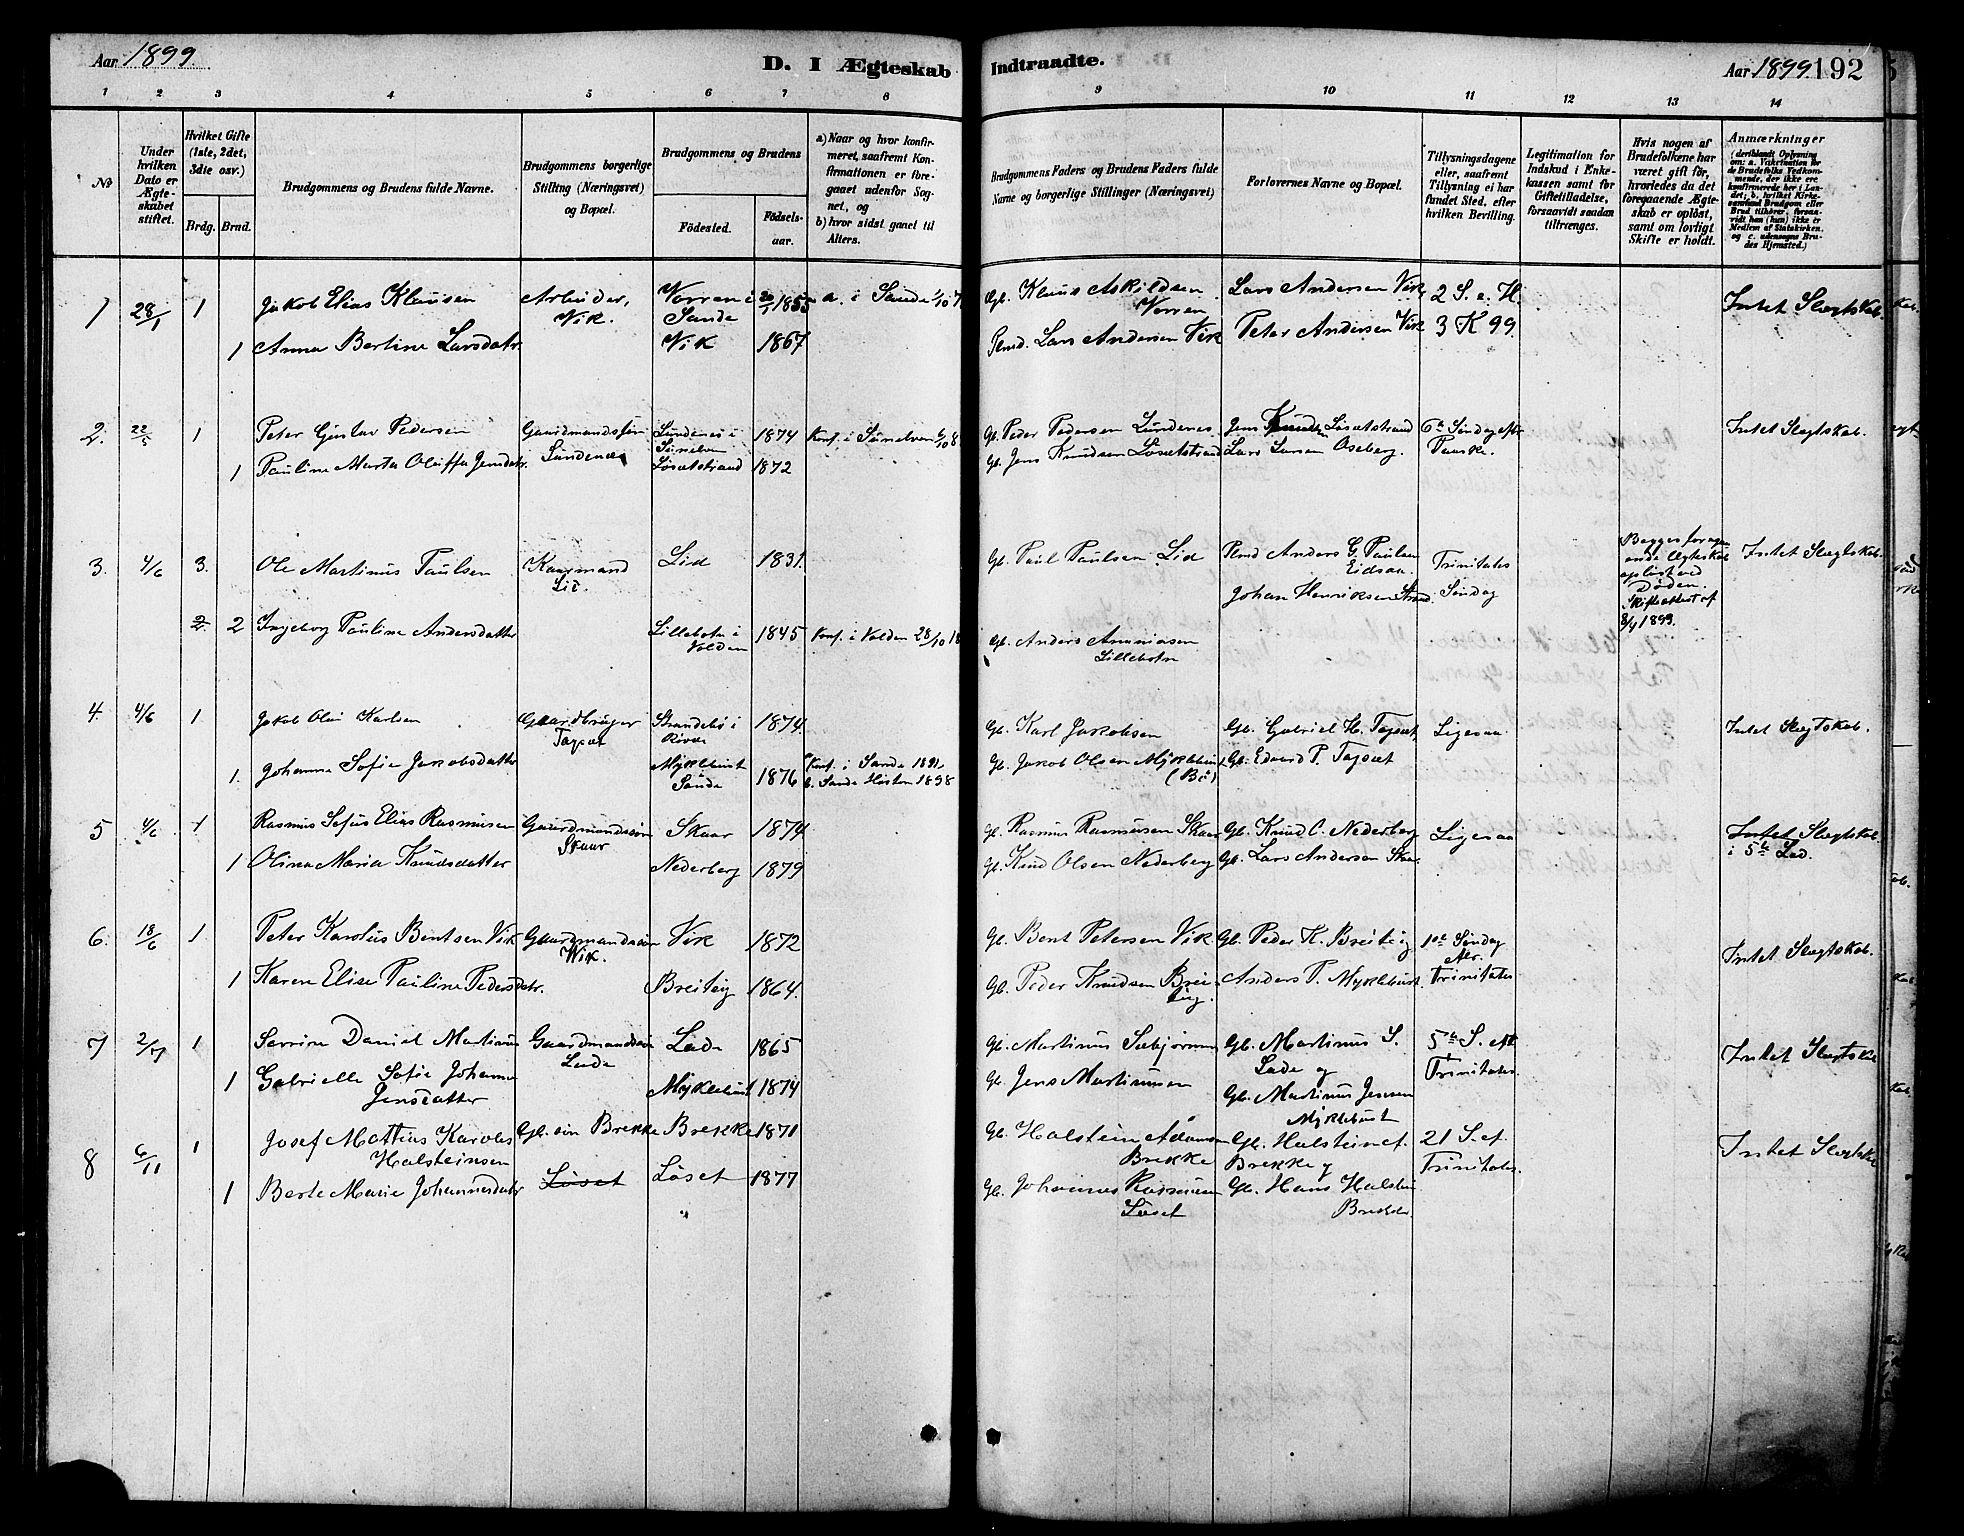 Aar 1899.
D. I Ægteskab Indtraadte.
Aar 1899. 192
1 2 3 4 5 6 7 8 9 10 11 12 13 14
No
Under hvilken Dato er Ægteskabet stiftet.
Hvilket Gifte (1ste, 2det, 3die osv.)
Brdg. Brud.
Brudgommens og Brudens fulde Navne.
Brudgommens borgerlige Stilling (Næringsvei) og Bopæl.
Brudgommens og Brudens
Födested. Födselsaar.
a) Naar og hvor konfirmeret, saafremt Konfirmationen er foregaaet udenfor Sognet, og
b) hvor sidst gaaet til Alters.
Brudgommens Faders og Brudens Faders fulde Navne og borgerlige Stillinger (Næringsvei)
Forlovernes Navne og Bopæl.
Tillysningsdagene eller, saafremt Tillysning ei har fundet Sted, efter hvilken Bevilling.
Legitimation for Indskud i Enkekassen samt for Giftetilladelse, forsaavidt saadan tiltrænges.
Hvis nogen af Brudefolkene har været gift för, hvorledes da det foregaaende Ægteskab er oplöst, samt om lovligt Skifte er holdt.
Anmærkninger
1 28/1 1 Jakob Elias Klausen Arbeider, Vik. Vorren i Sande 1855 a. i Sande
Klaus Askildsen Vorren Lars Andersen Vik 2 S. e. H. Intet Slegtskab.
1 Anna Bertine Larsdatr. Vik 1867
Lars Andersen Vik Peter Andersen Vik 3 K 99.
2. 22/5 1 Peter Gustav Pedersen Gaardmandssøn Lundenes Lundenes i Sunelven 1874 Konf. i Sunelven
Gb. Peder Pedersen Lundenes Jens Knudsen Løsetstrand 6te Søndag eftr Paaske. Intet Slegtskab.
1 Pauline Marta Oluffa Jensdatr. Løsetstrand 1872
Gb. Jens Knudsen Løsetstrand Lars Larsen Oseberg.
3. 4/6 3. Ole Martinus Paulsen Kaarmand Lid. Lid 1831.
Gb. Paul Paulsen Lid Anders G. Paulsen Eidsaa. Trinitatis Søndag
Begges foregaaende Ægteskab opløst ved Døden. Skifteattest af 8/4 1899. Intet Slegtskab.
Johan Henriksen Strand.
2 Ingeborg Pauline Andersdatter Lillebotn i Volden 1845 Konf. i Volden 28/10 18
Gb. Anders Ananiasen Lillebotn
4. 4/6 1 Jakob Olai Karlsen Gaardbruger Tapset Strandebø i Røvde 1874.
Gb. Karl Jakobsen Gb. Gabriel H. Tapset Ligesaa Intet Slegtskab.
1. Johanna Sofie Jakobsdatter Myklebust Sande 1876 Konf. i Sande 1891, b. Sande Høsten 1898
Gb. Jakob Olsen Myklebust (Bø) Gb. Edvard P. Tapset
5 4/6 1 Rasmus Sofus Elias Rasmusen Gaardmandssøn Skaar Skaar 1874
Gb. Rasmus Rasmusen Skaar Gb. Knud O. Nederberg Ligesaa Intet Slegtskab. i 5te Led.
1 Olina Maria Knudsdatter Nederberg 1879
Gb. Knud Olsen Nederberg Gb. Lars Andersen Skaar
6. 18/6 1 Peter Karolus Bentsen Vik Gaardmandssøn Wik. Vik 1872
Gb. Bent Petersen Vik Gb. Peder K. Breiteig 1ste Søndag eftr. Trinitatis Intet Slegtskab.
1 Karen Elise Pauline Pedersdatr. Breiteig 1864.
Gb. Peder Knudsen Breiteig. Anders P. Myklebust.
7 2/7 1 Severin Daniel Martinus Gaardmandssøn Lade Lade 1865
Gb. Martinus Sæbjørnsen Gb. Martinus S. Lade og 5te S. eft Trinitatis. Intet Slegtskab
1 Gabrielle Sofie Johanna Jensdatter Myklebust 1874
Gb. Jens Martinusen Gb. Martinus Jensen Myklebust
8 6/11 1 Josef Mattias Karoles Halsteinsen Gb. søn Brekke Brekke 1871
Gb. Halstein Adamsen Brekke Gb. Halstein Brekke og 21 S. ef. Trinitatis. Intet Slegtskab
1 Berte Marie Johannesdatr Løset Løset 1877
Gb. Johannes Rasmusen Løset Gb. Hans Halstein Brekke.